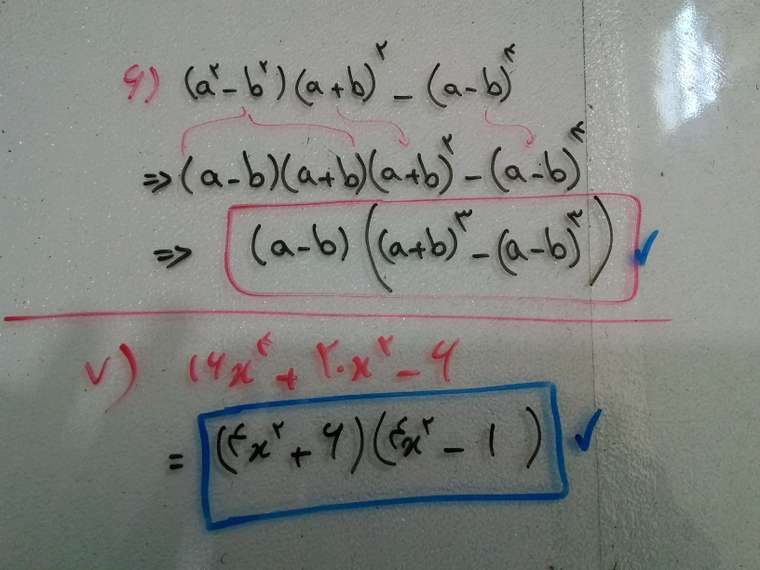 ۶) (a^۲ - b^۲)(a+b)^۲ - (a-b)^۴
=> (a-b)(a+b)(a+b)^۲ - (a-b)^۴
=> (a-b)((a+b)^۳ - (a-b)^۳) ✓
۷) ۱۶x^۴ + ۲۰x^۲ - ۶
= (۴x^۲ + ۶)(۴x^۲ - ۱) ✓